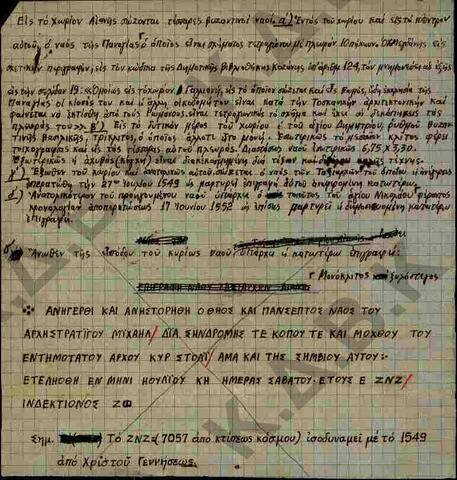 Εἰς τὸ χωρίον Αἰανὴ σώζονται τέσσαρες βυζαντινοὶ ναοί. α΄) Ἐντὸς τοῦ χωρίου καὶ εἰς τὸ κέντρον
αὐτοῦ ὁ ναὸς τῆς Παναγίας ὁ ὁποῖος εἶναι σχήματος τετραγώνου μὲ πλευρὰν 10 πήχεων.
σχετικὴν περιγραφὴν, εἰς τὸν κώδικα τῆς Δημοτικῆς Βιβλιοθήκης Κοζάνης ὑπ' ἀριθμ 124, τὸν μνημονεύει ὡς ἑξῆς
εἰς τὴν σελίδαν 19: «Ὁμοίως εἰς τὸ χωρίον εἰς τὸ ὁποῖον σώζεται καὶ ἐκκλησία τῆς
Παναγίας οἱ κίονές του καὶ ἡ ἄλλη οἰκοδομή του εἶναι κατὰ τὴν Τοσκανικὴν ἀρχιτεκτονικὴν καὶ
φαίνεται νὰ ἐκτίσθη ἀπὸ τοὺς Ρωμαίους. εἶναι τετραγωνικὸς τὸ σχῆμα καὶ ἔχει 10
πλευρᾶς του >> β΄) Εἰς τὸ Δυτικὸν μέρος τοῦ χωρίου ὁ τοῦ ἁγίου Δημητρίου, ρυθμοῦ βυζαν-
τινῆς βασιλικῆς, τρίκλιτος, ὁ ὁποῖος ἄλλοτε ἦτο μονή. Ἐσωτερικῶς τὸ μεσαῖον κλίτος φέρει
τοιχογραφίας καὶ εἰς τὰς τέσσαρας αὐτοῦ πλευράς. Διαστάσεις ναοῦ ἐσωτερικῶς 6,75 Χ 7,30.
Ἐξωτερικῶς ἡ ἀχιβὰς (κόγχη) εἶναι διακεκοσμημένη διὰ τόξων καὶ τέχνης.
γ΄) Ἔξωθεν τοῦ χωρίου καὶ ἀνατολικῶς αὐτοῦ σώζεται ὁ ναὸς τῶν Ταξιαρχῶν τοῦ ὁποίου ἡ ἀνέγερσις
ἐπερατώθη τὴν 27ην Ἰουλίου 1549 ὡς μαρτυρεῖ ἐπιγραφὴ κατωτέρω.
δ΄) Ἀνατολικώτερον τοῦ προηγουμένου ναοῦ ὑπάρχει ὁ τοῦ ἁγίου Νικολάου φέρων
χρονολογίαν ἀποπερατώσεως 17 Ἰουνίου 1552 ὡς ἐπίσης μαρτυρεῖ ἡ κατωτέρω
ἐπιγραφή.
Ἄνωθεν τῆς εἰσόδου τοῦ κυρίως ναοῦ ὑπάρχει ἡ κατωτέρω ἐπιγραφή:
Μονόκλιτος ξυλόστεγος
ΕΠΙΓΡΑΦΗ ΝΑΟΥ ΤΑΞΙΑΡΧΩΝ
ΑΝΗΓΕΡΘΙ ΚΑΙ ΑΝΗΣΤΟΡΗΘΗ Ο ΘΗΟΣ ΚΑΙ ΠΑΝΣΕΠΤΟΣ ΝΑΟΣ ΤΟΥ
ΑΡΧΗΣΤΡΑΤΙΓΟΥ ΜΙΧΑΗΛ/ ΔΙΑ ΣΗΝΔΡΟΜΗΣ ΤΕ ΚΟΠΟΥ ΤΕ ΚΑΙ ΜΟΧΘΟΥ ΤΟΥ
ΕΝΤΗΜΟΤΑΤΟΥ ΑΡΧΟΥ ΚΥΡ ΣΤΟΑΙ/ ΑΜΑ ΚΑΙ ΤΗΣ ΣΗΜΒΙΟΥ ΑΥΤΟΥ:-
ΕΤΕΛΗΟΘΗ ΕΝ ΜΗΝΙ ΗΟΥΛΙΟΥ ΚΗ ΗΜΕΡΑΣ ΣΑΒΑΤΟΥ· ΕΤΟΥΣ Ε ΖΝΖ/
ΙΝΔΕΚΤΙΟΝΟΣ ΖΦ
Σημ. Τὸ ΖΝΖ=(7057 ἀπὸ κτίσεως κόσμου) ἰσοδυναμεῖ μὲ τὸ 1549
ἀπὸ Χριστοῦ Γεννήσεως.
Κ.Δ.Β.Κ